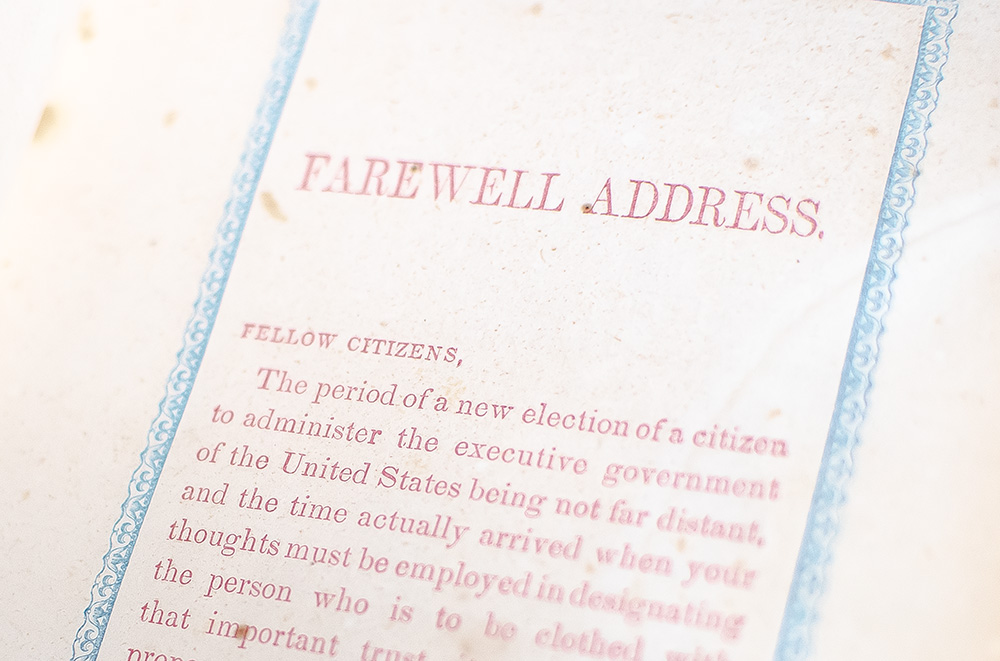 FAREWELL ADDRESS.
FELLOW CITIZENS,
The period of a new election of a citizen
to administer the executive government
of the United States being not far distant,
and the time actually arrived when your
thoughts must be employed in designating
the person who is to be clothed with
that important trust